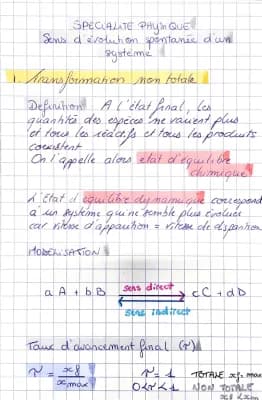 SPECIALITE PHYSIQUE
Sens d'évolution spontanée d'un
système
1. Transformation non totale
Definition A l'état final, les
quantités des espèces ne varient plus
et tous les réactifs et tous les produits
coexistent
On l'appelle alors état d'équilibre
chimique
L'Etat d'équilibre dynamique correspond
à un système qui ne semble plus évoluer
car vitesse d'apparition = vitesse de disparition
MODELISATION
a A + b B sens direct c C + d D
sens indirect
Taux d'avancement final (τ)
τ = xf / xmax τ = 1 TOTALE xf = xmax
0 < τ < 1 NON TOTALE
xf < xm